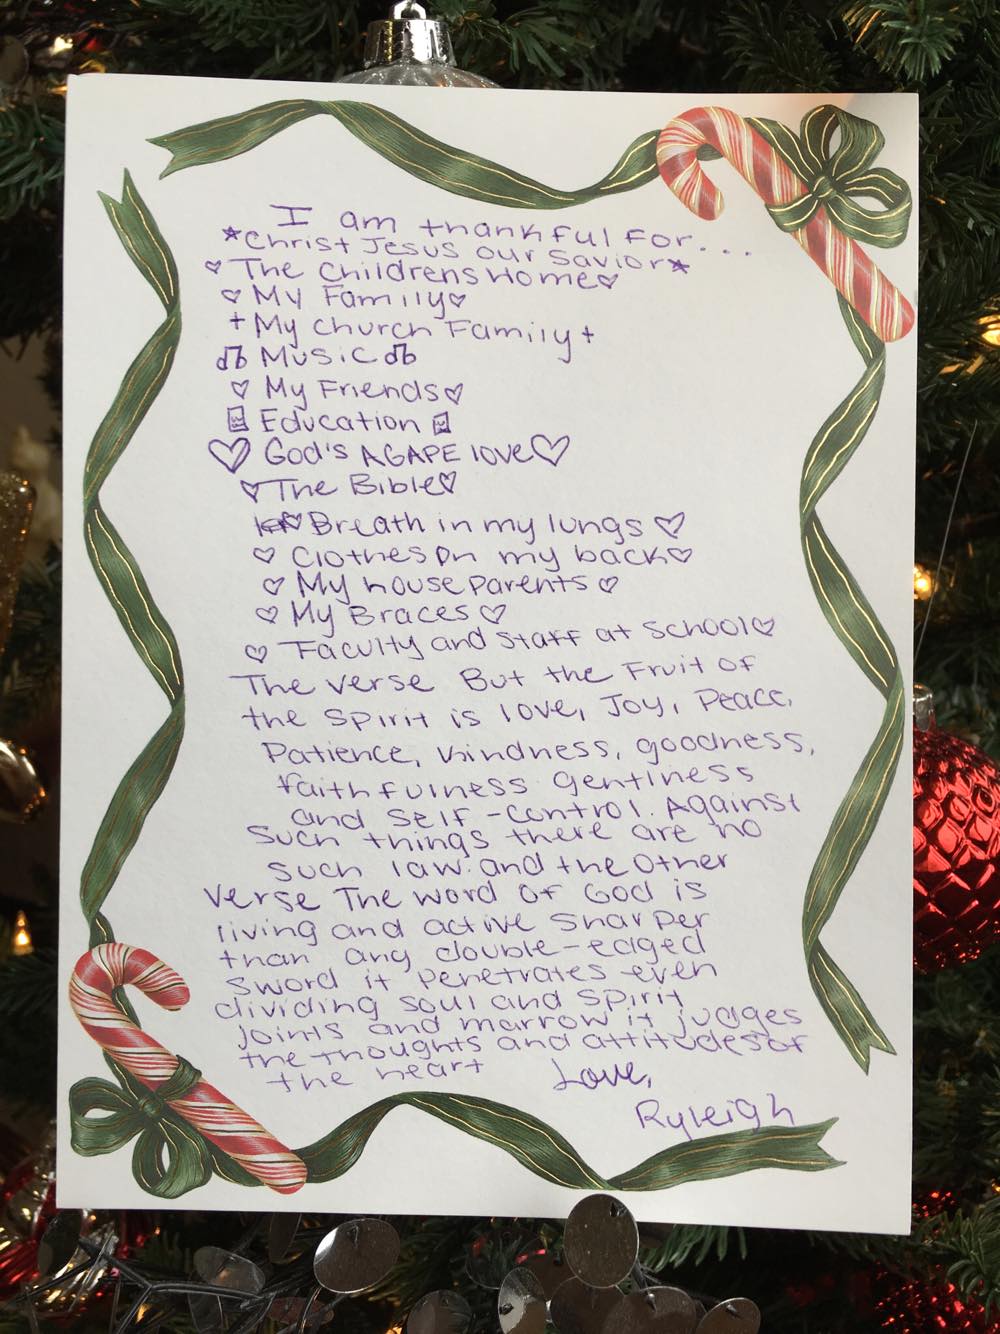 I am thankful for....
*Christ Jesus our Savior*
♡The Childrens Home♡
♡My Family♡
+My Church Family+
♫Music♫
♡My Friends♡
Education
♡God's AGAPE love♡
♡The Bible♡
♡Breath in my lungs♡
♡Clothes on my back♡
♡My house parents♡
♡My Braces♡
♡Faculty and staff at School♡
The verse But the Fruit of
the spirit is love, Joy, Peace,
Patience, kindness, goodness,
faithfulness Gentlness
and self-control. Against
such things there are no
such law. and the other
verse The word of God is
living and active Sharper
than any double-edged
sword it penetrates even
dividing soul and spirit
joints and marrow it judges
the thoughts and attitudes of
the heart
Love,
Ryleigh